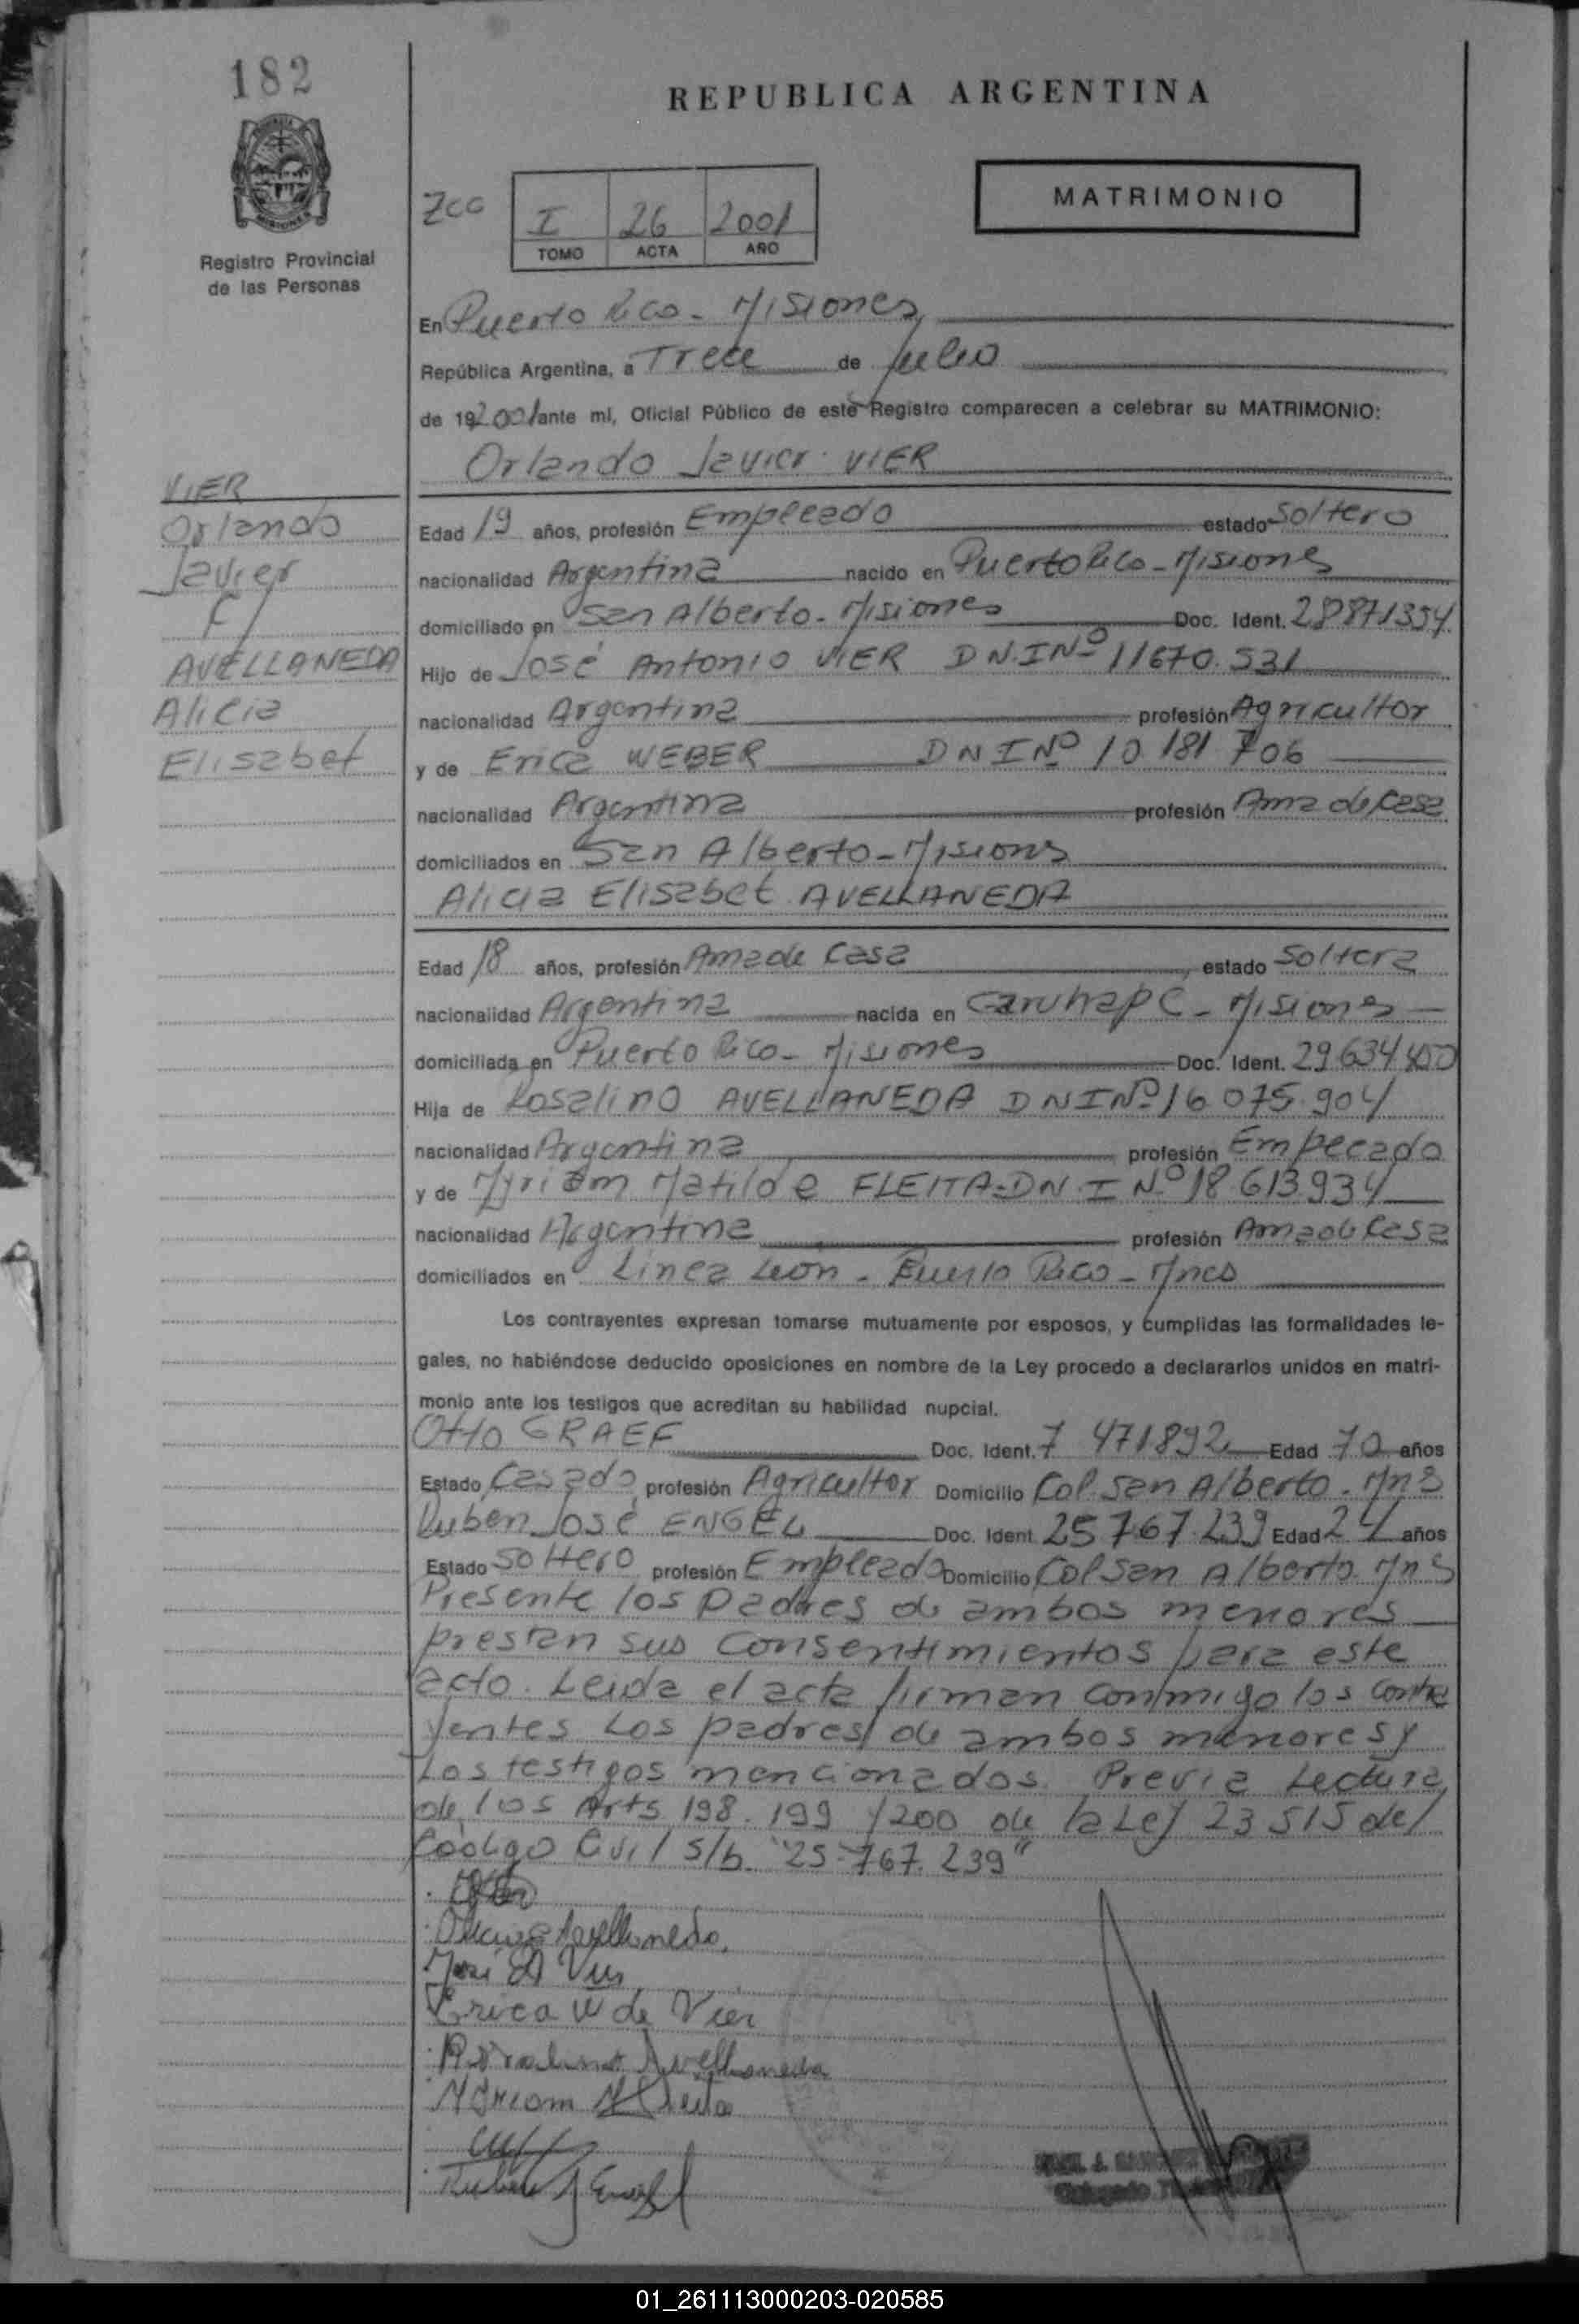 182
REPUBLICA ARGENTINA
MATRIMONIO
I 26 2001
TOMO ACTA AÑO
Registro Provincial
de las Personas
En Puerto Rico - Misiones
República Argentina, a Trece de Julio
de 192001 ante mí, Oficial Público de este Registro comparecen a celebrar su MATRIMONIO:
Orlando Javier VIER
VIER
Orlando
Javier
c/
AVELLANEDA
Alicia
Elisabet
Edad 19 años, profesión Empleado estado Soltero
nacionalidad Argentina nacido en Puerto Rico - Misiones
domiciliado en San Alberto - Misiones Doc. Ident. 28871354
Hijo de José Antonio VIER D N.I Nº 11670.531
nacionalidad Argentina profesión Agricultor
y de Erica WEBER D N I Nº 10 181 706
nacionalidad Argentina profesión Ama de Casa
domiciliados en San Alberto - Misiones
Alicia Elisabet AVELLANEDA
Edad 18 años, profesión Ama de Casa estado Soltera
nacionalidad Argentina nacida en Caruhapé - Misiones
domiciliada en Puerto Rico - Misiones Doc. Ident. 29634400
Hija de Rosalino AVELLANEDA D N I Nº 16 075.904
nacionalidad Argentina profesión Empleado
y de Myriam Matilde FLEITA - D N. I Nº 18 613.934
nacionalidad Argentina profesión Ama de Casa
domiciliados en Linea León - Puerto Rico - Mnes
Los contrayentes expresan tomarse mutuamente por esposos, y cumplidas las formalidades le-
gales, no habiéndose deducido oposiciones en nombre de la Ley procedo a declararlos unidos en matri-
monio ante los testigos que acreditan su habilidad nupcial.
Otto GRAEF Doc. Ident. 7 471892 Edad 70 años
Estado Casado profesión Agricultor Domicilio Col. San Alberto - Mns
Ruben José ENGEL Doc. Ident. 25767.239 Edad 24 años
Estado Soltero profesión Empleado Domicilio Col San Alberto Mns
Presente los padres de ambos menores
prestan sus consentimientos para este
acto. Leida el acta firman conmigo los contra
yentes Los padres de ambos menores y
Los testigos mencionados. Previa Lectura
de los Arts 198. 199 y 200 de la Ley 23 515 del
Código Civil s/b. "25-767.239"
Alicia Avellaneda
José A Vier
Erica W de Vier
Rosalino Avellaneda
Myriam M Fleita
Ruben J Engel
01_261113000203-020585